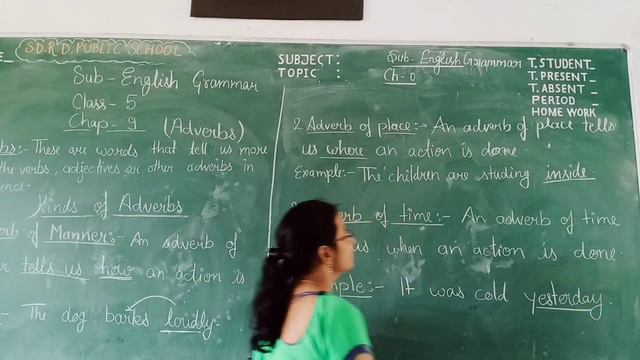 S.D.R.D. PUBLIC SCHOOL
Sub - English Grammar
Class - 5
Chap - 9 (Adverbs)
bs:- These are words that tell us more
the verbs, adjectives or other adverbs in
ence.
Kinds of Adverbs
rb of Manner:- An adverb of
r tells us how an action is
The dog barks loudly.
SUBJECT: Sub - English Grammar
TOPIC : Ch - 0
T. STUDENT_
T. PRESENT_
T. ABSENT _
PERIOD _
HOME WORK
2. Adverb of place:- An adverb of place tells
us where an action is done.
Example:- The children are studing inside.
erb of time:- An adverb of time
us when an action is done.
mple:- It was cold yesterday.